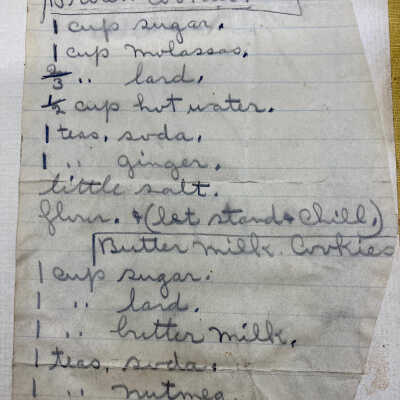 Brown Cookies.
1 cup sugar.
1 cup molassas.
2/3 " lard.
1/2 cup hot water.
1 teas. soda.
1 " ginger.
little salt.
flour. & (let stand & chill.)
Butter Milk Cookies
1 cup sugar.
1 " lard.
1 " butter milk.
1 teas. soda.
1 " nutmeg.